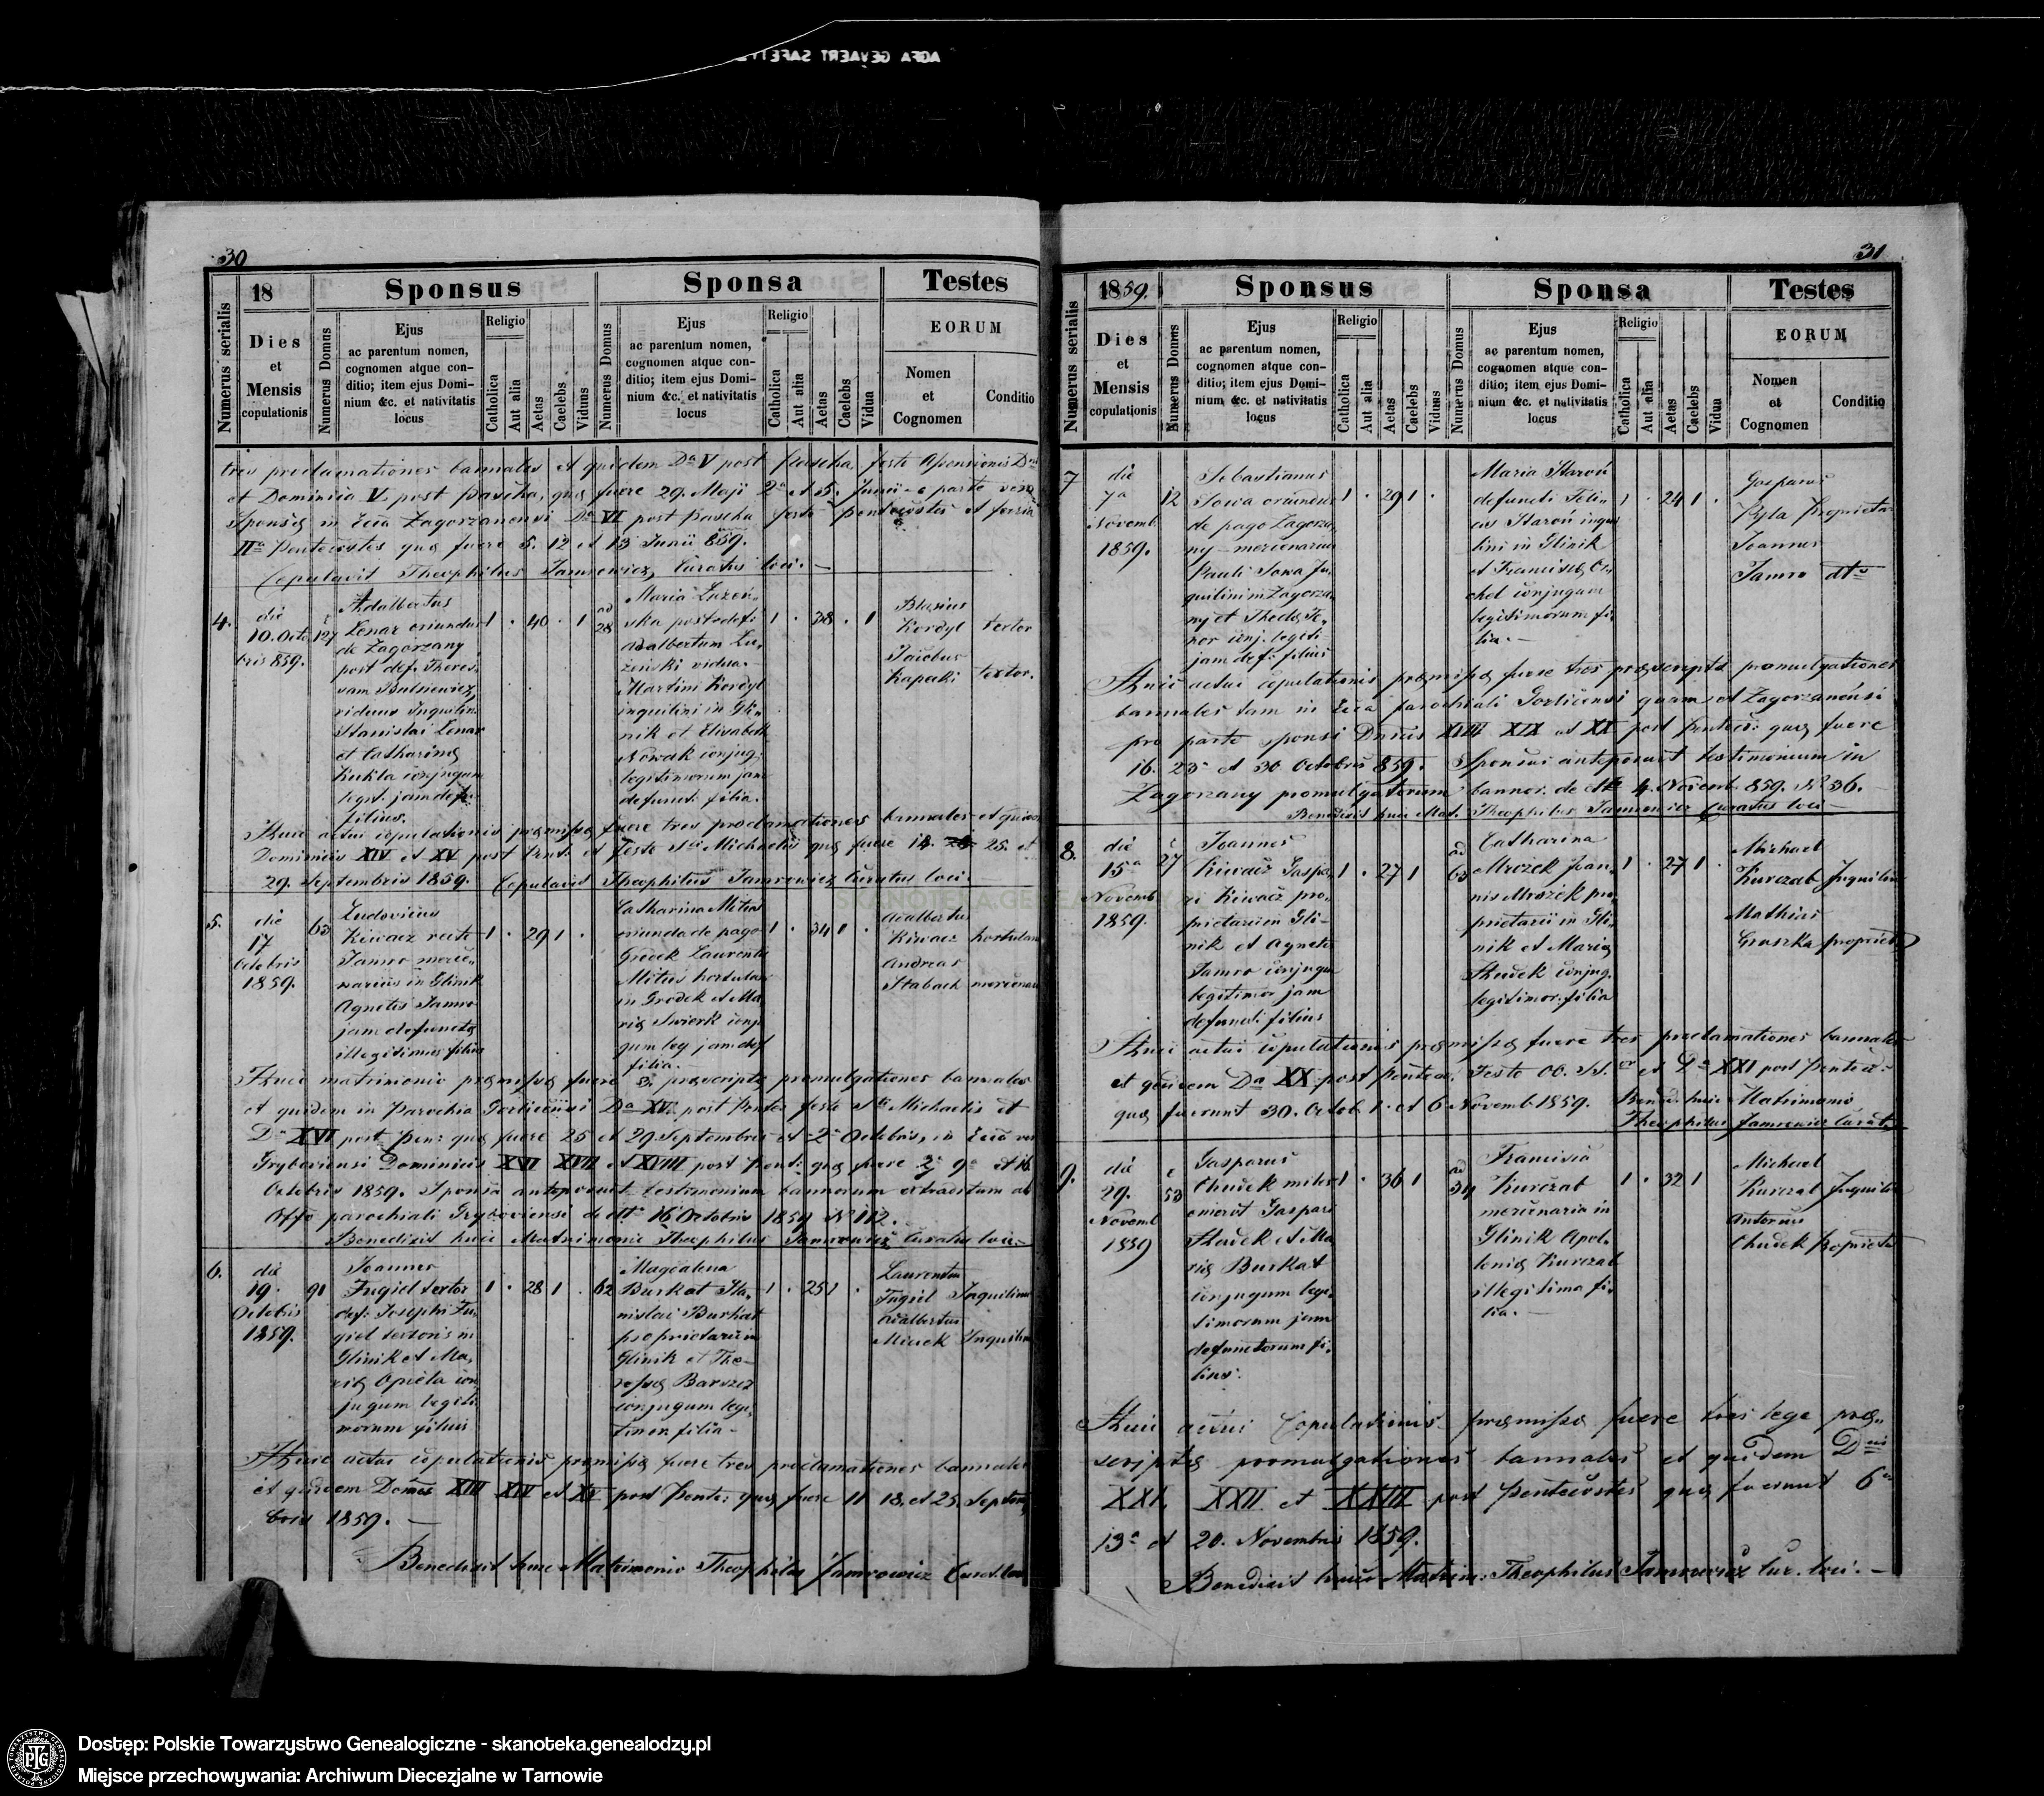 AGFA GEVAERT SAFETY
30
Numerus serialis
18
Dies
et
Mensis
copulationis
Sponsus
Numerus Domus
Ejus
ac parentum nomen,
cognomen atque con-
ditio; item ejus Domi-
nium &c. et nativitatis
locus
Religio
Catholica
Aut alia
Aetas
Caelebs
Viduus
Sponsa
Numerus Domus
Ejus
ac parentum nomen,
cognomen atque con-
ditio; item ejus Domi-
nium &c. et nativitatis
locus
Religio
Catholica
Aut alia
Aetas
Caelebs
Vidua
Testes
EORUM
Nomen
et
Cognomen
Conditio
tres proclamationes bannales et quidem Da V post Pascha, festo
et Dominica V. post Pascha, quae fuere 29. Maji 2a et 5. Junii e parte vero
Sponsae in Zagorzanensi Da VI post Pascha festo Pentecostes et feria
IIa Pentecostes quae fuere 5. 12 et 13 Junii 859.
Copulavit Theophilus Jamrowicz, Curatus loci. —
4.
die
10. Octo
bris 859.
127
Adalbertus
Lenar oriundus
de Zagorzany
post def. There,
sam
viduus Inquilin
Stanislai Lenar
et Catharinae
Kukla conjugum
legit. jam def.
filius.
1 . 40 . 1
ad
28
Maria Luzeń,
ska post def:
Adalbertum Lu,
żeński vidua.
Martini Kordyl
inquilini in Gli,
nik et Elisabeth
Nowak conjug.
legitimorum jam
defunct. filia.
1 . 38 . 1
Blasius
Kordyl textor
Jacobus
Kapecki textor.
Huic actui copulationis praemissae fuere tres proclamationes bannales et quidem
Dominicis XIV et XV post Pent. et festo Sti Michaelis quae fuere 18. 25. et
29. Septembris 1859. Copulavit Theophilus Jamrowicz Curatus loci.
5.
die
17
Octobris
1859.
63
Ludovicus
Kiwacz recte
Jamro merce,
narius in Glinik
Agnetis Jamro
jam defunctae
illegitimus filius
1 . 29 1 .
Catharina Mitus
oriunda de pago
Grodek Laurentii
Mitus hortulani
in Grodek et Ma
riae Swierk conju
gum leg. jam def
filia.
1 . 34 1 .
Adalbertus
Kiwacz hortulan
Andreas
Stabach mercenari
Huic matrimonio praemissae fuere 3. praescriptae promulgationes bannales
et quidem in Parochia Gorlicensi Da XV. post Pentec. festo Sti Michaelis et
Da XVI post Pen: quae fuere 25 et 29 Septembris et 2a Octobris, in Ecca vero
Gryboviensi Dominicis XVI XVII et XVIII post Pent: quae fuere 2a 9a et 16
Octobris 1859. Sponsa anteposuit testimonium bannorum extraditum ab
Offo parochiali Gryboviensi de dto 16 Octobris 1859 N 112.
Benedixit huic Matrimonio Theophilus Jamrowicz Curatus loci. —
6.
die
19.
Octobris
1859.
91
Joannes
Jugiel textor
def: Josephi Ju,
giel textoris in
Glinik et Ma,
riae Opiela con
jugum legiti
morum filius
1 . 28 1 .
62
Magdalena
Burkat Sta,
nislai Burkat
proprietarii in
Glinik et The,
resae Barszcz
conjugum legi,
timor. filia —
1 . 25 1 .
Laurentius
Jugiel Inquilinus
Adalbertus
Micek Inquilin
Huic actui copulationis praemissae fuere tres proclamationes bannales
et quidem Domcis XIII XIV et XV post Pente: quae fuere 11 18. et 25. Septem,
bris 1859. —
Benedixit huic Matrimonio Theophilus Jamrowicz Curat. loci
31
Numerus serialis
1859.
Dies
et
Mensis
copulationis
Sponsus
Numerus Domus
Ejus
ac parentum nomen,
cognomen atque con-
ditio; item ejus Domi-
nium &c. et nativitatis
locus
Religio
Catholica
Aut alia
Aetas
Caelebs
Viduus
Sponsa
Numerus Domus
Ejus
ac parentum nomen,
cognomen atque con-
ditio; item ejus Domi-
nium &c. et nativitatis
locus
Religio
Catholica
Aut alia
Aetas
Caelebs
Vidua
Testes
EORUM
Nomen
et
Cognomen
Conditio
7
die
7a
Novemb.
1859.
12
Sebastianus
Sowa oriundus
de pago Zagorza,
ny — mercenarius
Pauli Sowa In,
quilini in Zagorza,
ny et
conj. legiti
jam def: filius
1 . 29 1 .
Maria Staroń
defuncti Feli,
cis Staroń inqui
lini in Glinik
et Franciscae
conjugum
legitimorum fi,
lia. —
1 . 24 1 .
Gasparus
Pyla Proprieta
Joannes
Jamro dto
Huic actui copulationis praemissae fuere tres praescriptae promulgationes
bannales tam in Ecca parochiali Gorlicensi quam et Zagorzanensi
pro parte sponsi Dnicis XVIII XIX et XX post Pentec: quae fuere
16. 23 et 30 Octobris 859. Sponsus anteposuit testimonium in
Zagorzany promulgatorum bannor. de dto 4. Novemb. 859. N 36. —
Benedixit huic Mat. Theophilus Jamrowicz Curatus loci —
8.
die
15a
Novemb
1859.
27
Joannes
Kiwacz Gaspa,
ri Kiwacz pro,
prietarii in Gli,
nik et Agnetis
Jamro conjugum
legitimor. jam
defunct. filius
1 . 27 1 .
ad
63
Catharina
Mrozek Joan,
nis Mrozek pro,
prietarii in Gli,
nik et Mariae
conjug.
legitimor. filia
1 . 27 1 .
Michael
Kurczab Inquilin
Mathias
Gruszka propriet
Huic actui copulationis praemissae fuere tres proclamationes bannales
et quidem Da XX post Pentec. Festo OO. SS. et Da XXI post Pentec.
quae fuerunt 30. Octob. 1. et 6 Novemb 1859. Bened. huic Matrimonio
Theophilus Jamrowicz Curat.
9.
die
29.
Novemb
1859
53
Gasparus
Chudek miles
emerit Gaspari
et Ma
riae Burkat
conjugum legi,
timorum jam
defunctorum fi,
lius.
1 . 36 1
ad
34
Francisca
Kurczab
mercenaria in
Glinik Apol,
loniae Kurczab
illegitima fi,
lia. —
1 . 32 1
Michael
Kurczab Inquilin
Antonius
Chudek Proprieta
Huic actui Copulationis praemissae fuere tres lege prae,
scriptae promulgationes bannales et quidem Dnicis
XXI. XXII et XXIII post Pentecostes quae fuerunt 6a
13a et 20. Novembris 1859.
Benedixit huic Matrim. Theophilus Jamrowicz Cur. loci. —
SKANOTEKA.GENEALODZY.PL
Dostęp: Polskie Towarzystwo Genealogiczne - skanoteka.genealodzy.pl
Miejsce przechowywania: Archiwum Diecezjalne w Tarnowie